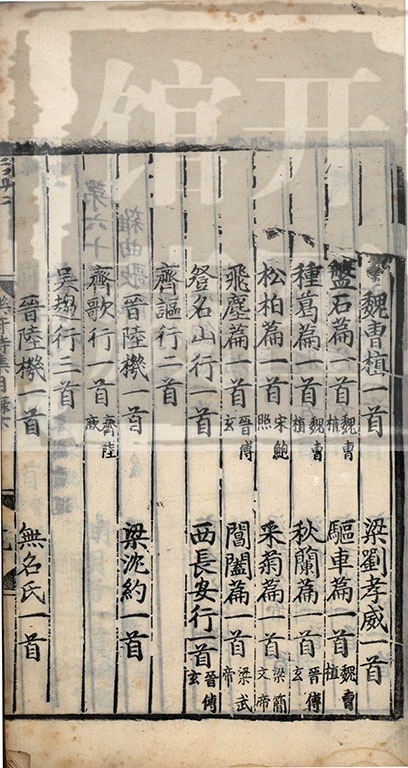 魏曹植一首 梁劉孝威一首
盤石篇一首 魏曹植 驅車篇一首 魏曹植
種葛篇一首 魏曹植 秋蘭篇一首 晉傅玄
松柏篇一首 宋鮑照 采菊篇一首 梁簡文帝
飛塵篇一首 晉傅玄 閶闔篇一首 梁武帝
登名山行一首 西長安行一首 晉傅玄
齊謳行二首
晉陸機一首 梁沈約一首
齊歌行一首 齊陸厥
吳趨行三首
晉陸機一首 無名氏一首
开
馆